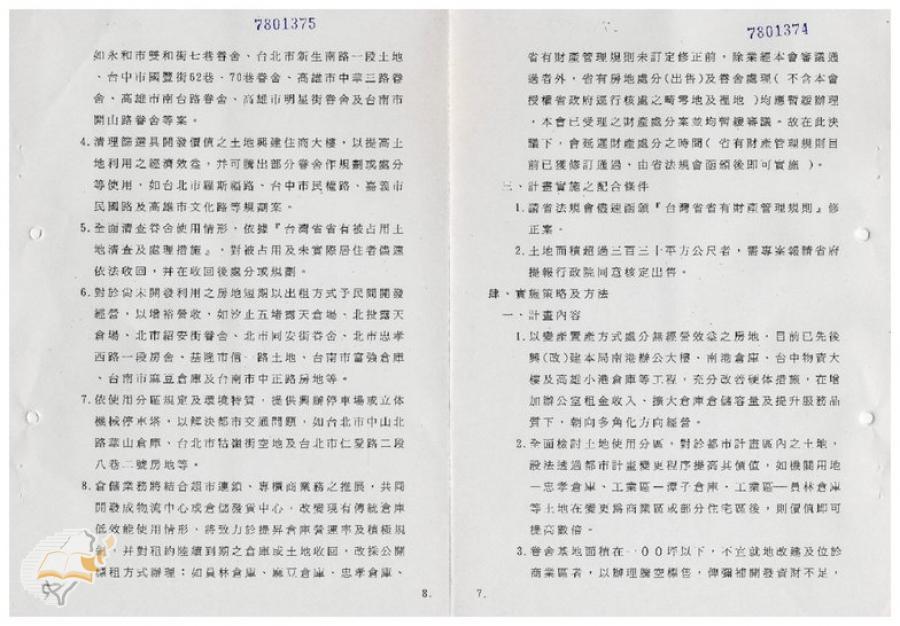 7801374
省有財產管理規則未訂定修正前，除業經本會審議通
過者外，省有房地處分(出售)及眷舍處理( 不含本會
授權省政府逕行核處之畸零地及裡地 )均應暫緩辦理
，本會已受理之財產處分案並均暫緩審議。故在此決
議下，會延遲財產處分之時間( 省有財產管理規則目
前已獲修訂通過、由省法規會函頒後即可實施 )。
三、計畫實施之配合條件
1.請省法規會儘速函頒『台灣省省有財產管理規則』修
正案。
2.土地面積超過三百三十平方公尺者，需專案報請省府
擬報行政院同意核定出售。
肆、實施策略及方法
一、計畫內容
1.以變產置產方式處分無經營效益之房地，目前已先後
興(改)建本局南港辦公大樓、南港倉庫、台中物資大
樓及高雄小港倉庫等工程，充分改善硬体措施，在增
加辦公室租金收入、擴大倉庫倉儲容量及提升服務品
質下，朝向多角化方向經營。
2.全面檢討土地使用分區，對於都市計畫區內之土地，
設法透過都市計畫變更程序提高其價值，如機關用地
—忠孝倉庫、工業區—潭子倉庫、工業區—員林倉庫
等土地在變更為商業區或部分住宅區後，則價值即可
提高數倍。
3.眷舍基地面積在一００坪以下，不宜就地改建及位於
商業區者，以辦理騰空標售，俾彌補開發資財不足，
7.
7801375
如永和市雙和街七巷眷舍、台北市新生南路一段土地
、台中市國豐街62巷、70巷眷舍、高雄市中華三路眷
舍、高雄市南台路眷舍、高雄市明星街眷舍及台南市
開山路眷舍等案。
4.清理篩選具開發價值之土地興建住商大樓，以提高土
地利用之經濟效益，并可騰出部分眷舍作規劃或處分
等使用，如台北市羅斯福路、台中市民權路、嘉義市
民國路及高雄市文化路等規劃案。
5.全面清查眷舍使用情形，依據『台灣省省有被占用土
地清查及處理措施』，對被占用及未實際居住者儘速
依法收回，并在收回後處分或規劃。
6.對於尚未開發利用之房地短期以出租方式予民間開發
經營，以增裕營收，如汐止五堵露天倉場、北投露天
倉場、北市紹安街眷舍、北市同安街眷舍、北市忠孝
西路一段房舍、基隆市信一路土地、台南市富強倉庫
、台南市麻豆倉庫及台南市中正路房地等。
7.依使用分區規定及環境特質，提供興辦停車場或立体
機械停車塔，以解決都市交通問題，如台北市中山北
路華山倉庫、台北市牯嶺街空地及台北市仁愛路二段
八巷二號房地等。
8.倉儲業務將結合超市連鎖、專櫃商業務之推展，共同
開發成物流中心或倉儲發貨中心，改變現有傳統倉庫
低效能使用情形，將致力於提昇倉庫營運率及積極規
，并對租約陸續到期之倉庫或土地收回，改採公開
標租方式辦理；如員林倉庫、麻豆倉庫、忠孝倉庫、
8.